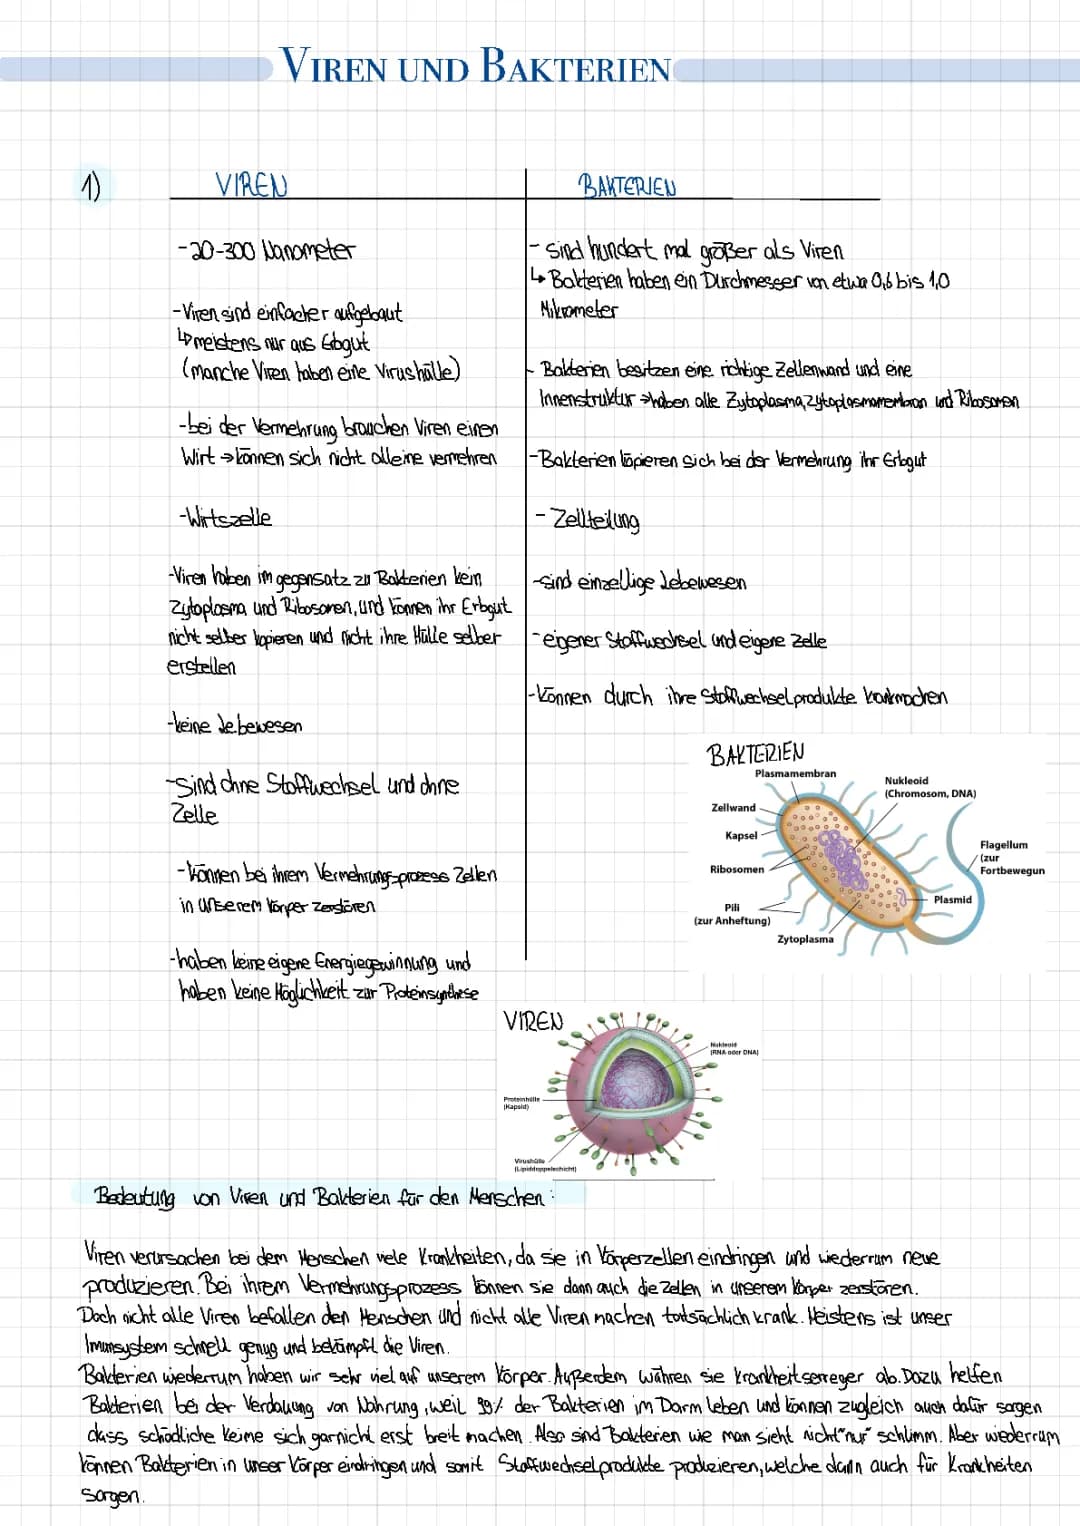 VIREN UND BAKTERIEN
1)
VIREN
-20-300 Nanometer
-Viren sind einfacher aufgebaut
↳ meistens nur aus Erbgut
(manche Viren haben eine Virushülle)
-bei der Vermehrung brauchen Viren einen
Wirt → können sich nicht alleine vermehren
-Wirtszelle
-Viren haben im gegensatz zu Bakterien kein
Zytoplasma und Ribosomen, und können ihr Erbgut
nicht selber kopieren und nicht ihre Hülle selber
erstellen
-keine Lebewesen
-sind ohne Stoffwechsel und ohne
Zelle
-können bei ihrem Vermehrungsprozess Zellen
in unserem Körper zerstören
-haben keine eigene Energiegewinnung und
haben keine Möglichkeit zur Proteinsynthese
BAKTERIEN
- sind hundert mal größer als Viren
↳ Bakterien haben ein Durchmesser von etwa 0,6 bis 1,0
Mikrometer
- Bakterien besitzen eine richtige Zellenwand und eine
Innenstruktur → haben alle Zytoplasma, Zytoplasmamembran und Ribosomen
-Bakterien kopieren sich bei der Vermehrung ihr Erbgut
- Zellteilung
-sind einzellige Lebewesen
-eigener Stoffwechsel und eigene Zelle
-können durch ihre Stoffwechselprodukte krankmachen
BAKTERIEN
Plasmamembran
Nukleoid
(Chromosom, DNA)
Zellwand
Kapsel
Flagellum
(zur
Fortbewegun
Ribosomen
Plasmid
Pili
(zur Anheftung)
Zytoplasma
VIREN
Nukleoid
(RNA oder DNA)
Proteinhülle
(Kapsid)
Virushülle
(Lipiddoppelschicht)
Bedeutung von Viren und Bakterien für den Menschen:
Viren verursachen bei dem Menschen viele Krankheiten, da sie in Körperzellen eindringen und wiederrum neue
produzieren. Bei ihrem Vermehrungsprozess können sie dann auch die Zellen in unserem Körper zerstören.
Doch nicht alle Viren befallen den Menschen und nicht alle Viren machen tatsächlich krank. Meistens ist unser
Imunsystem schnell genug und bekämpft die Viren.
Bakterien wiederrum haben wir sehr viel auf unserem Körper. Außerdem währen sie Krankheitserreger ab. Dazu helfen
Bakterien bei der Verdauung von Nahrung, weil 99% der Bakterien im Darm leben und können zugleich auch dafür sorgen
dass schädliche Keime sich garnicht erst breit machen. Also sind Bakterien wie man sieht nicht "nur" schlimm. Aber wiederrum
können Bakterien in unser Körper eindringen und somit Stoffwechselprodukte produzieren, welche dann auch für Krankheiten
sorgen.